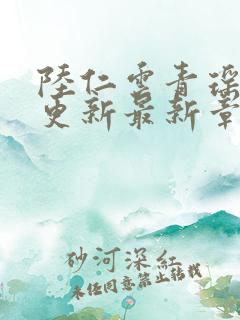 陸仁雲青瑶
更新最新章
砂河深紅
未经同意禁止转载